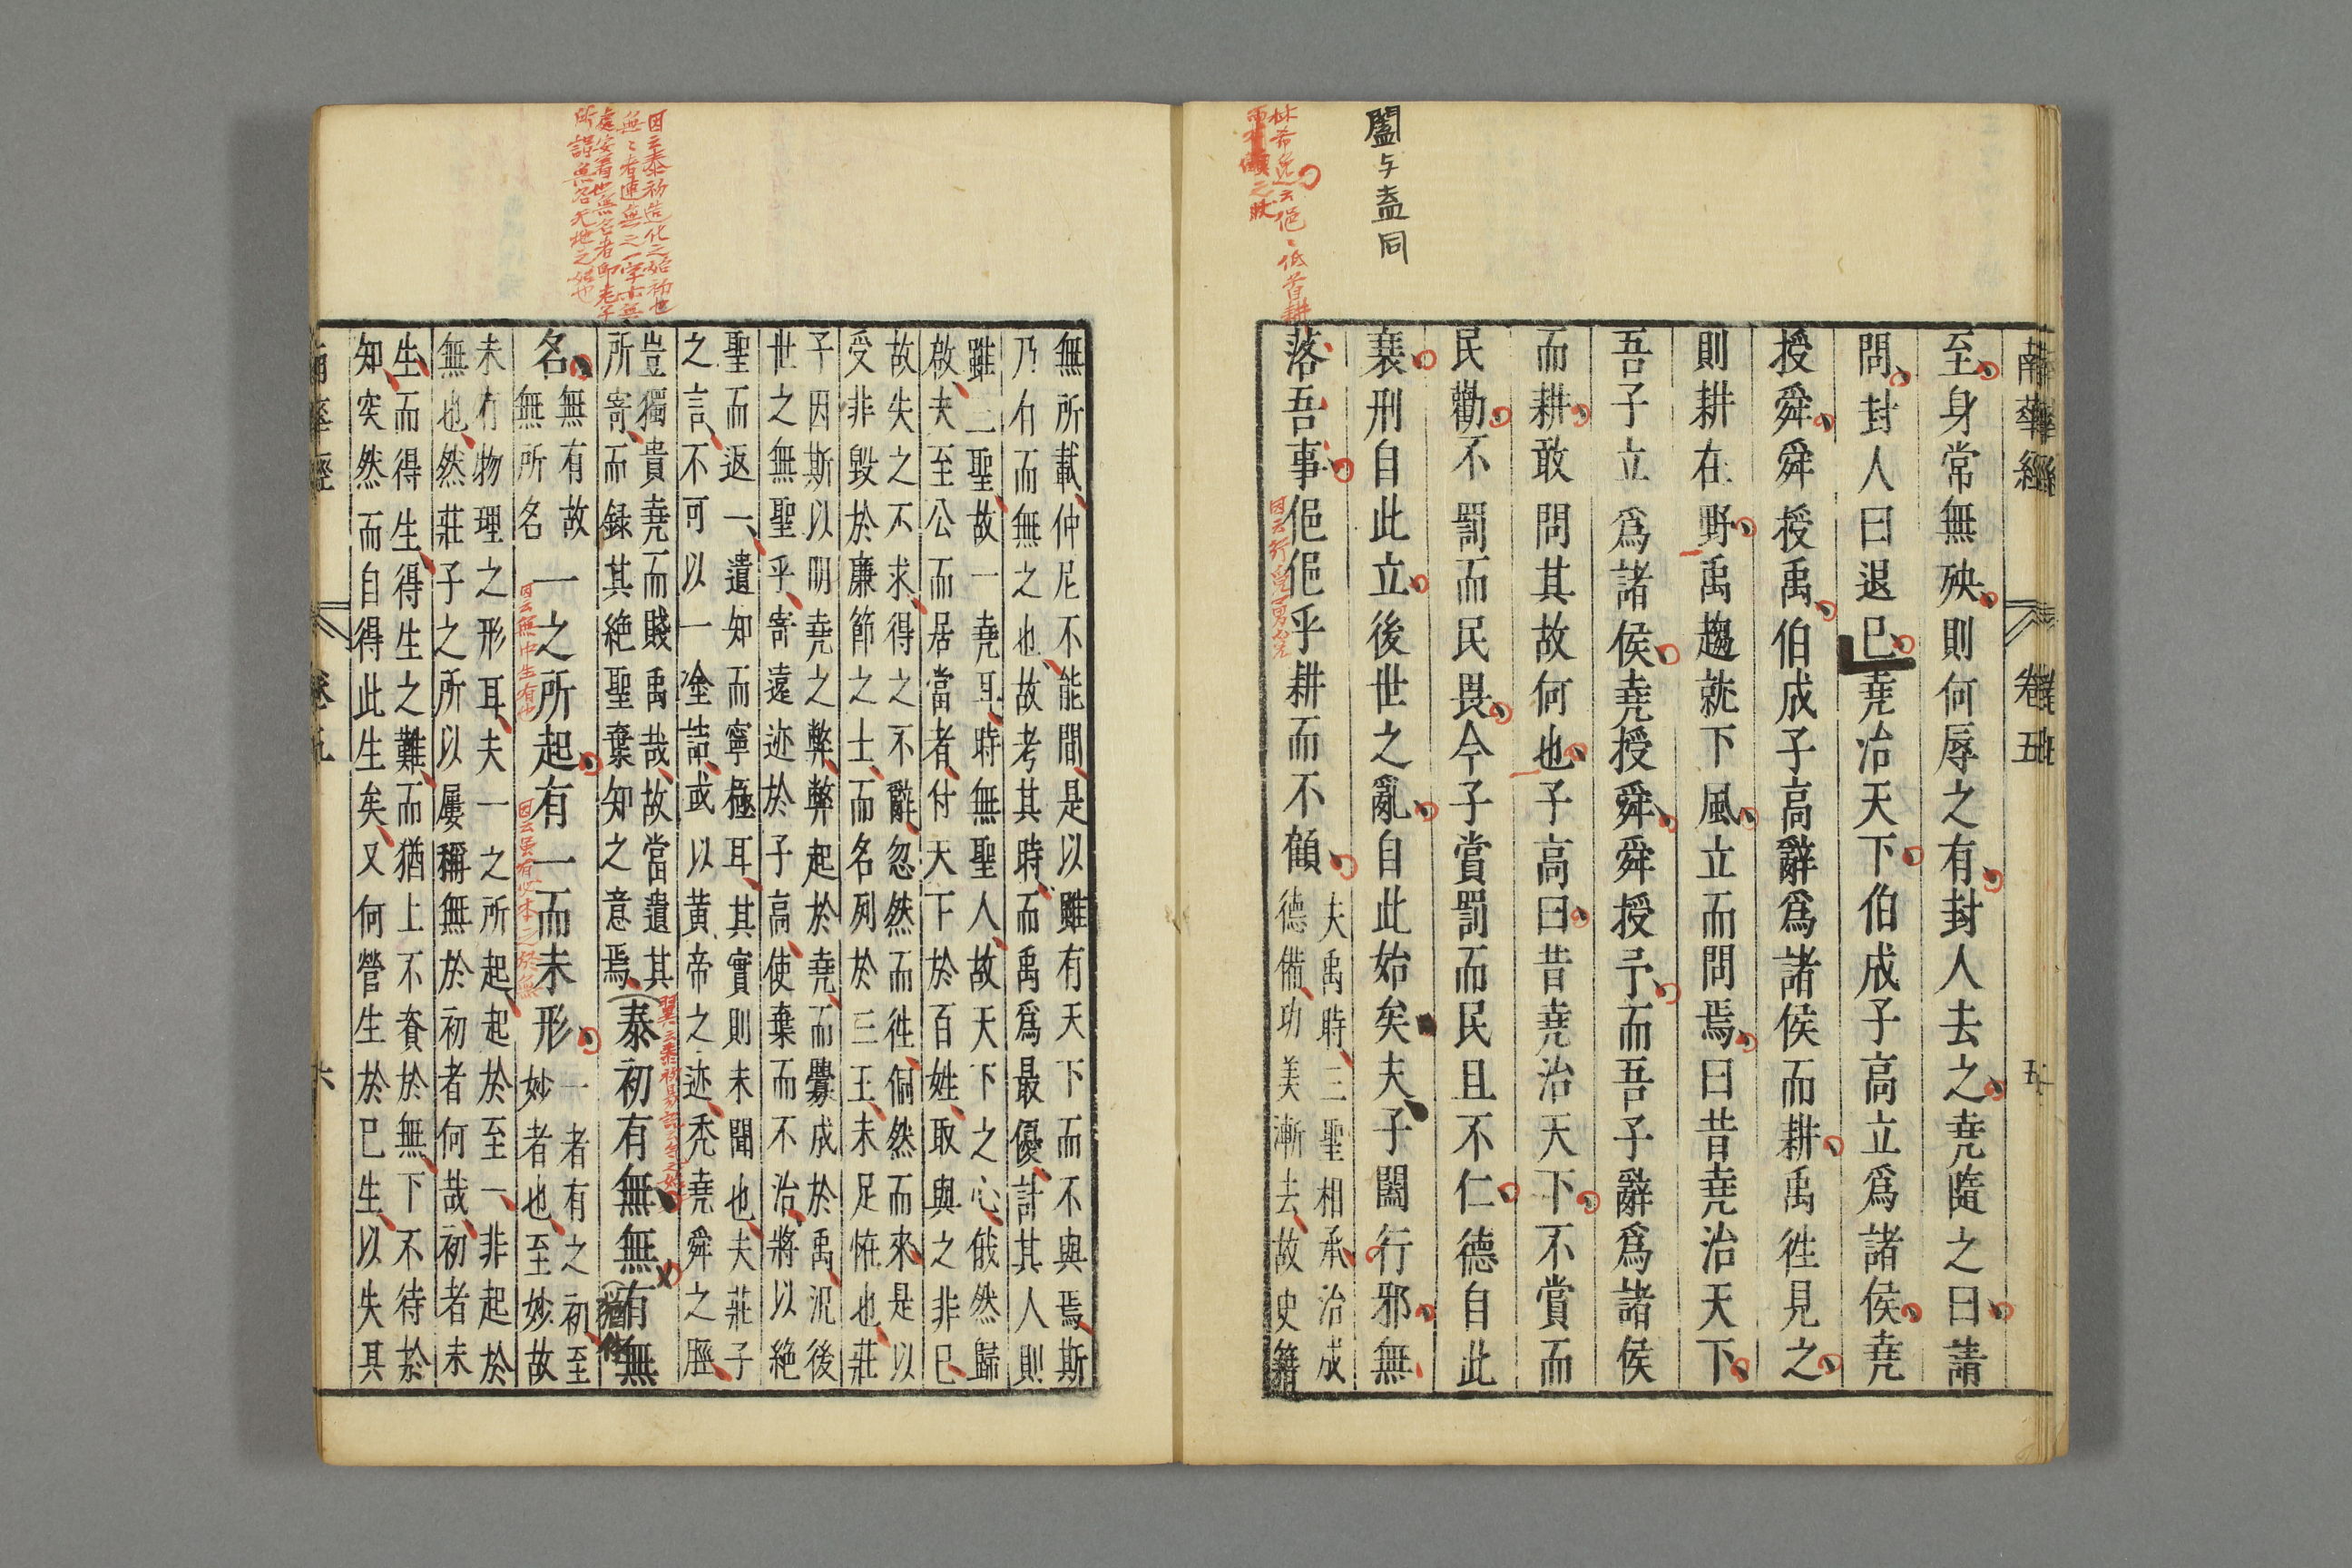 南華經
卷五
五
至身常無殃則何辱之有封人去之堯隨之曰請
問封人曰退已堯治天下伯成子高立爲諸侯堯
授舜舜授禹伯成子高辭爲諸侯而耕禹徃見之
則耕在野禹趨就下風立而問焉曰昔堯治天下
吾子立爲諸侯堯授舜舜授予而吾子辭爲諸侯
而耕敢問其故何也子高曰昔堯治天下不賞而
民勸不罰而民畏今子賞罰而民且不仁德自此
衰刑自此立後世之亂自此始矣夫子闔行邪無
落吾事俋俋乎耕而不顧
夫禹時三聖相承治成
德備功美漸去故史籍
闔与盍同
林希逸云俋〻低首耕
而不顧之狀
無所載仲尼不能間是以雖有天下而不與焉斯
乃有而無之也故考其時而禹爲最優計其人則
雖三聖故一堯耳時無聖人故天下之心俄然歸
啟夫至公而居當者付天下於百姓取與之非已
故失之不求得之不辭忽然而徃侗然而來是以
受非毀於廉節之士而名列於三王未足怪也莊
子因斯以明堯之弊弊起於堯而釁成於禹况後
世之無聖乎寄遠迹於子高使棄而不治將以絶
聖而返一遺知而寧極耳其實則未聞也夫莊子
之言不可以一塗詰或以黄帝之迹禿堯舜之脛
豈獨貴堯而賤禹哉故當遺其
所寄而録其絶聖棄知之意焉
泰初有無無有無
名
無有故
無所名
一之所起有一而未形
一者有之初至
妙者也至妙故
未有物理之形耳夫一之所起起於至一非起於
無也然莊子之所以屢稱無於初者何哉初者未
生而得生得生之難而猶上不資於無下不待於
知突然而自得此生矣又何營生於已生以失其
因云泰初造化之始初也
無〻者連無之一字亦無
處安着也無名者即老子
所謂無名天地之始也
因云無中生有也
因云虽有一本之於無
南華經
卷五
六